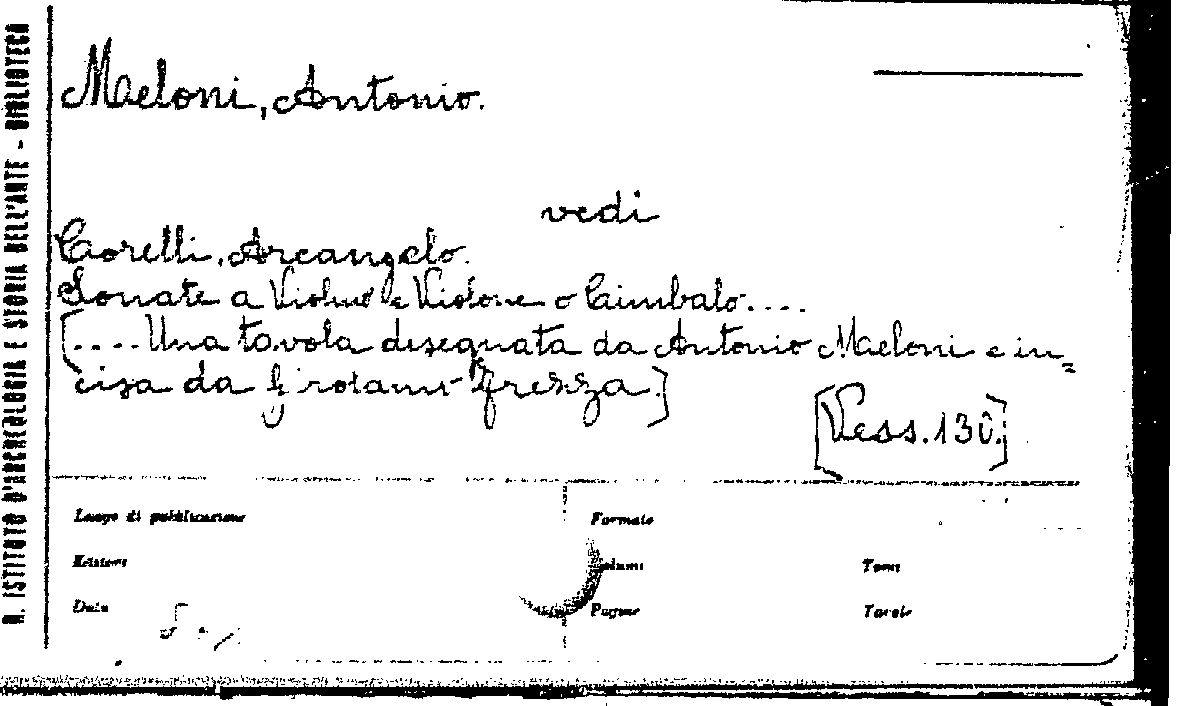 R. ISTITUTO D'ARCHEOLOGIA E STORIA DELL'ARTE - BIBLIOTECA
Meloni, Antonio.
vedi
Corelli, Arcangelo.
Sonate a Violino e Violone o Cimbalo....
[....Una tavola disegnata da Antonio Meloni e in=
cisa da Girolamo Frezza.]
[Vess. 130.]
Luogo di pubblicazione
Formato
Editore
Volumi
Tomi
Data
Pagine
Tavole